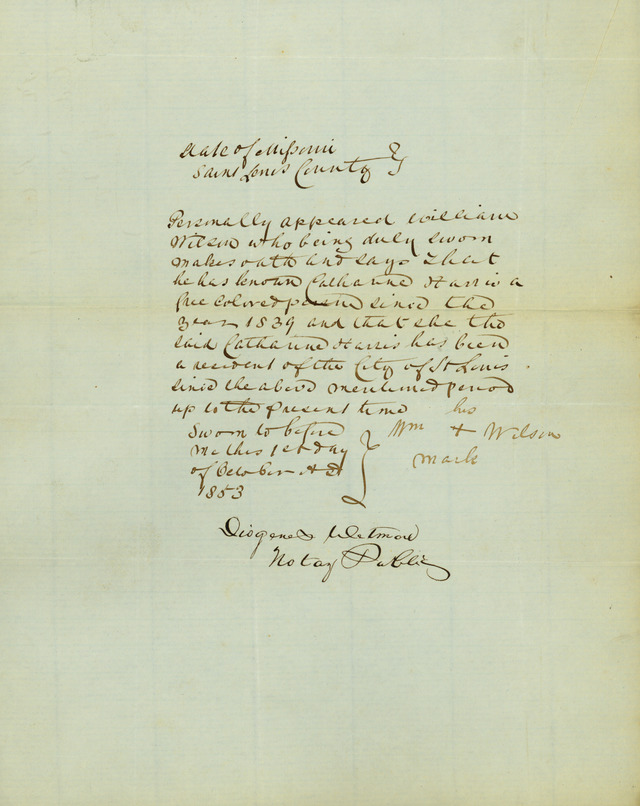 State of Missouri }
Saint Louis County }
Personally appeared William
Wilson who being duly sworn
makes oath and says that
he has known Catharine Harris a
free colored person since the
year 1839 and that she the
said Catharine Harris has been
a resident of the City of St Louis
since the above mentioned period
up to the present time
his
Wm + Wilson
mark
Sworn to before
me this 1st day
of October AD
1853
Diogenes Wetmore
Notay Public